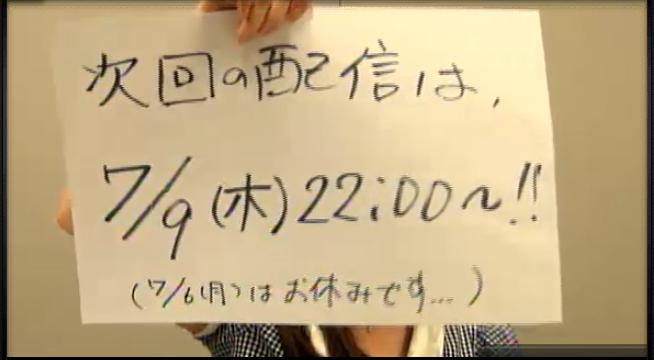 次回の配信は,
7/9(木)22:00~!!
(7/6(月)はお休みです...)